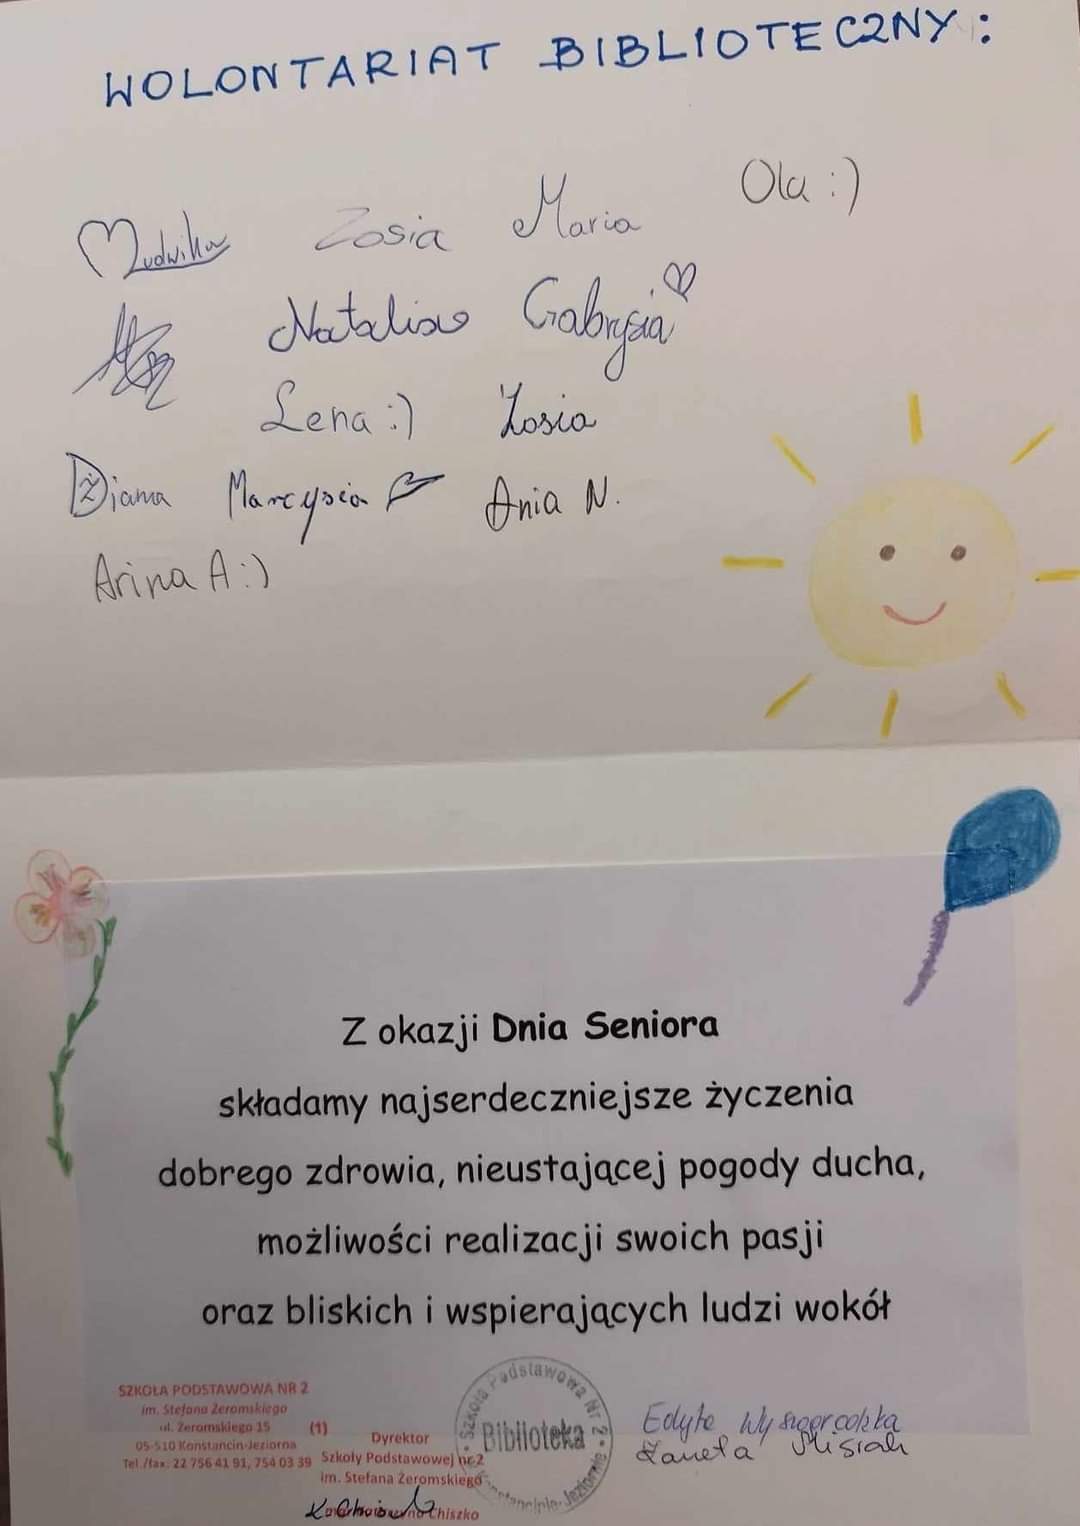 WOLONTARIAT BIBLIOTECZNY:
Ludwika Zosia Maria Ola :)
Natalia Gabrysia
Lena :) Zosia
Diana Marcysia Ania N.
Arina A :)
Z okazji Dnia Seniora
składamy najserdeczniejsze życzenia
dobrego zdrowia, nieustającej pogody ducha,
możliwości realizacji swoich pasji
oraz bliskich i wspierających ludzi wokół
SZKOŁA PODSTAWOWA NR 2
im. Stefana Żeromskiego
ul. Żeromskiego 15 (1)
05-510 Konstancin-Jeziorna
Tel./fax: 22 756 41 91, 754 03 39
Dyrektor
Szkoły Podstawowej nr 2
im. Stefana Żeromskiego
Chiszko
Szkoła Podstawowa Nr 2
Biblioteka
Edyta Wyszogrodzka
Żaneta Misiak